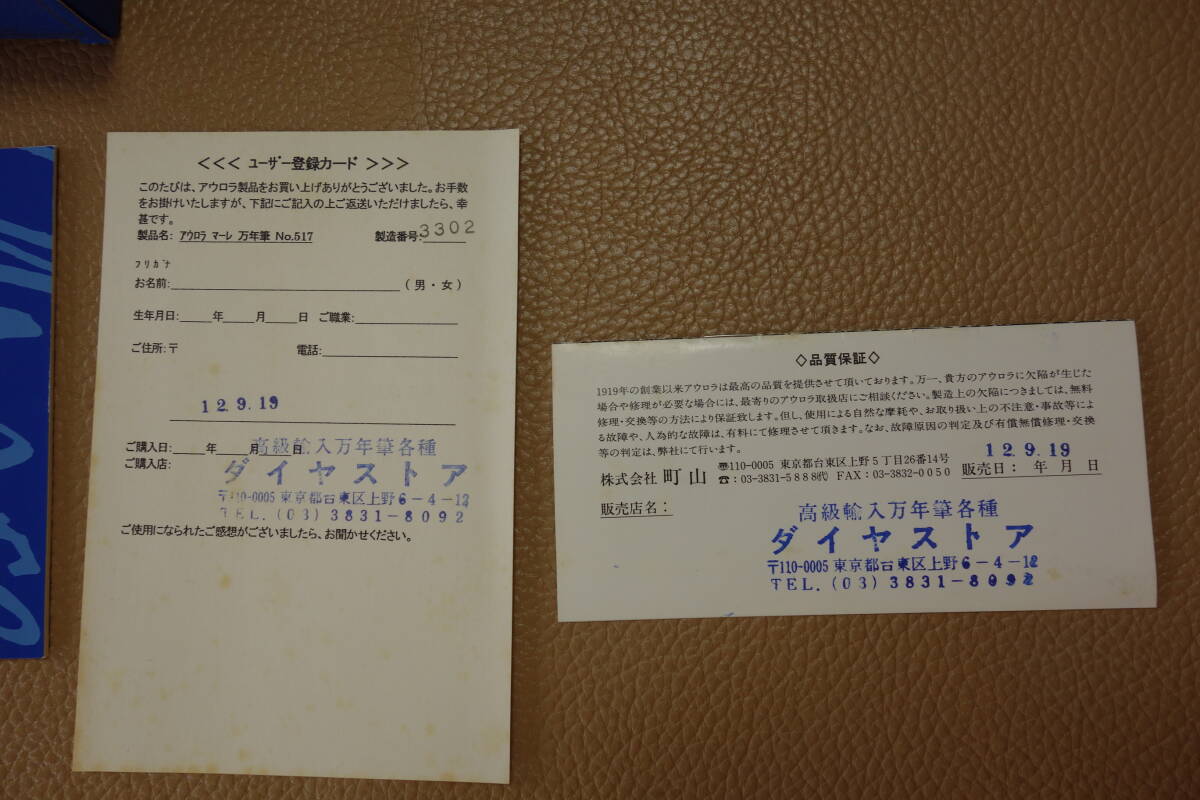 <<< ユーザー登録カード >>>
このたびは、アウロラ製品をお買い上げありがとうございました。お手数
をお掛けいたしますが、下記にご記入の上ご返送いただけましたら、幸
甚です。
製品名: アウロラ マーレ 万年筆 No.517 製造番号: 3302
フリガナ
お名前: (男・女)
生年月日: 年 月 日 ご職業:
ご住所:〒 電話:
12.9.19
ご購入日: 年 月 日
高級輸入万年筆各種
ご購入店:
ダイヤストア
〒110-0005 東京都台東区上野6-4-12
TEL.(03)3831-8092
ご使用になられたご感想がございましたら、お聞かせください。
◇品質保証◇
1919年の創業以来アウロラは最高の品質を提供させて頂いております。万一、貴方のアウロラに欠陥が生じた
場合や修理が必要な場合には、最寄りのアウロラ取扱店にご相談ください。製造上の欠陥につきましては、無料
修理・交換等の方法により保証致します。但し、使用による自然な摩耗や、お取り扱い上の不注意・事故等によ
る故障や、人為的な故障は、有料にて修理させて頂きます。なお、故障原因の判定及び有償無償修理・交換
等の判定は、弊社にて行います。
12.9.19
株式会社 町山 〒110-0005 東京都台東区上野5丁目26番14号
☎:03-3831-5888代 FAX:03-3832-0050 販売日: 年 月 日
販売店名:
高級輸入万年筆各種
ダイヤストア
〒110-0005 東京都台東区上野6-4-12
TEL.(03)3831-8092